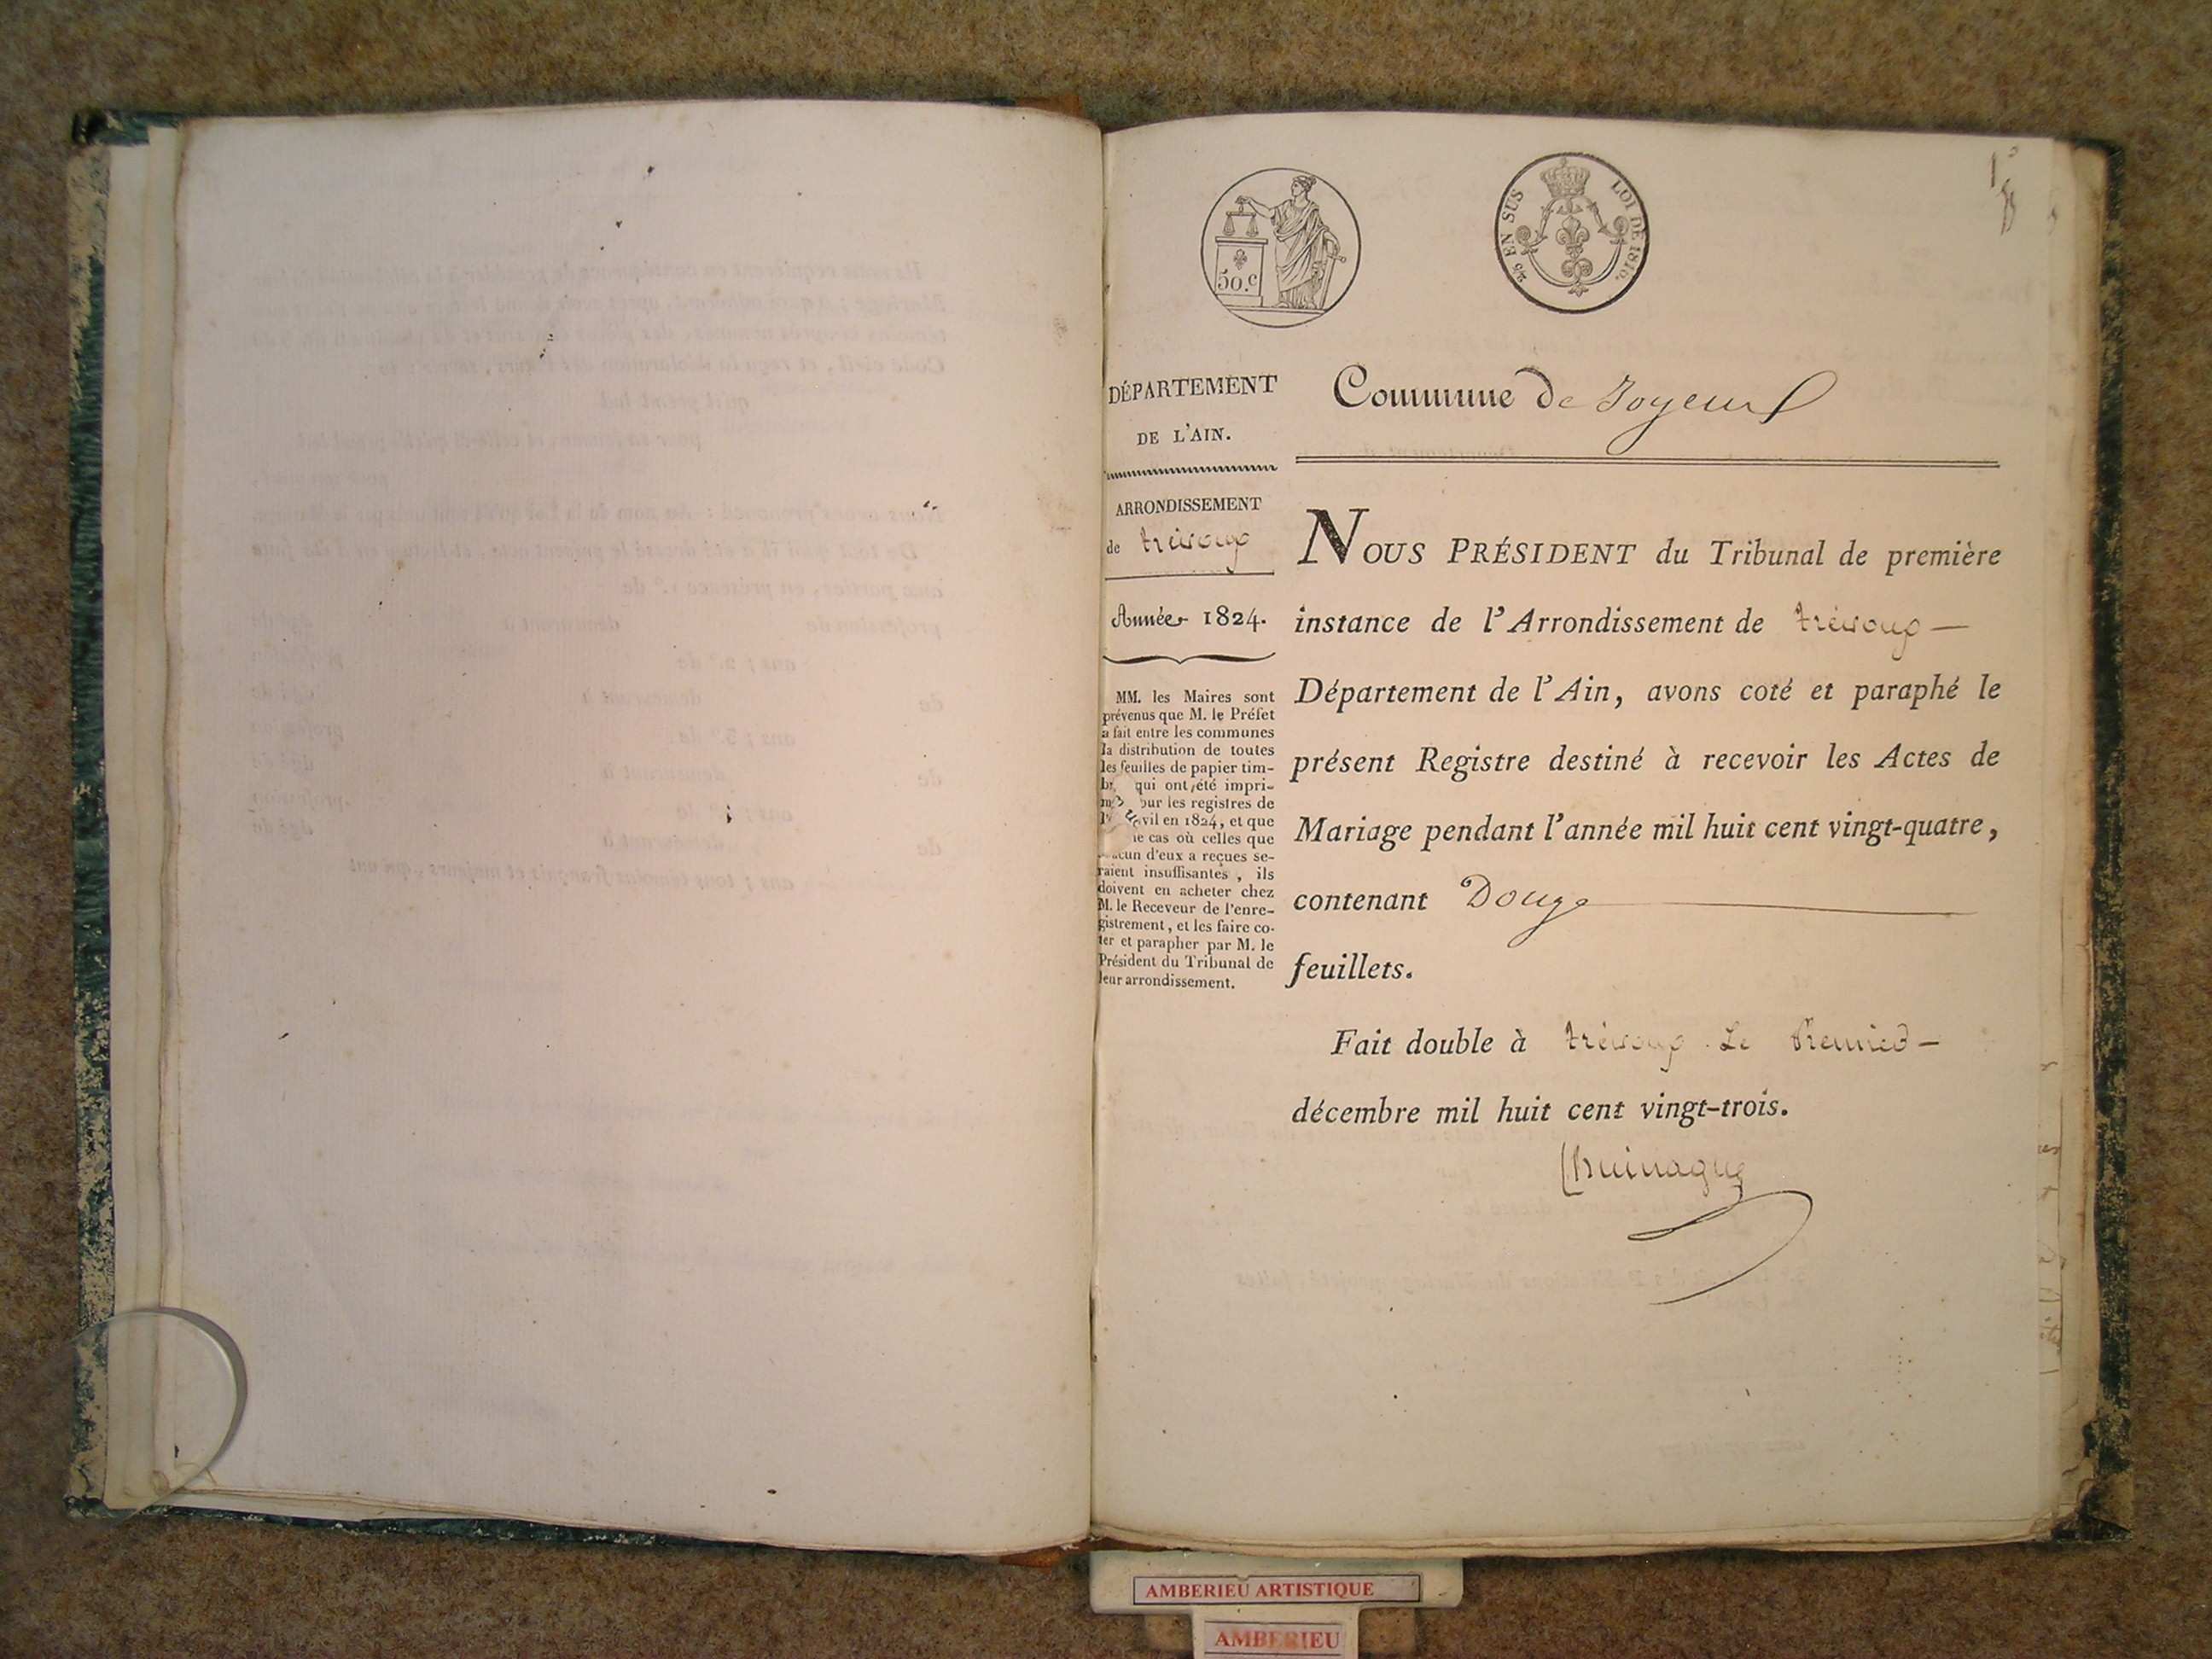 50.c
EN SUS
LOI DE 1816.
DÉPARTEMENT
DE L'AIN.
ARRONDISSEMENT
de trévoux
Année 1824.
MM. les Maires sont
prévenus que M. le Préfet
a fait entre les communes
la distribution de toutes
les feuilles de papier tim-
qui ont été impri-
les registres de
en 1824, et que
cas où celles que
d'eux a reçues se-
raient insuffisantes, ils
doivent en acheter chez
M. le Receveur de l'enre-
gistrement, et les faire co-
ter et parapher par M. le
Président du Tribunal de
leur arrondissement.
Commune de Joyeux
NOUS PRÉSIDENT du Tribunal de première
instance de l'Arrondissement de trévoux —
Département de l'Ain, avons coté et paraphé le
présent Registre destiné à recevoir les Actes de
Mariage pendant l'année mil huit cent vingt-quatre,
contenant Douze
feuillets.
Fait double à trévoux Le Premier —
décembre mil huit cent vingt-trois.
AMBERIEU ARTISTIQUE
AMBERIEU